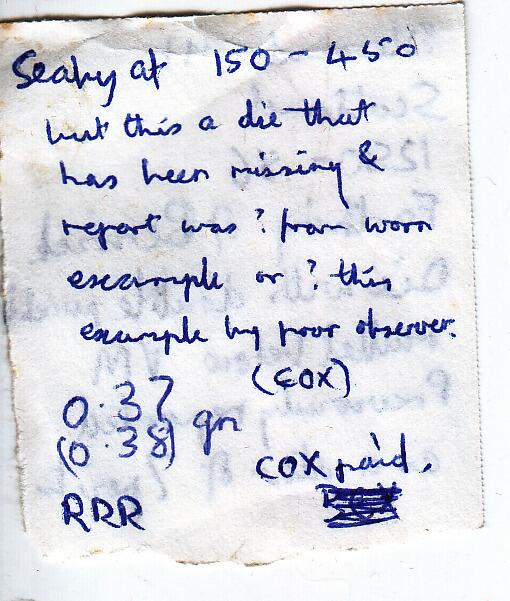 Seaby at 150 - 450
but this a die that
has been missing &
report was ? from worn
example or ? this
example by poor observer.
(COX)
0.37
(0.38) gm
COX paid.
RRR